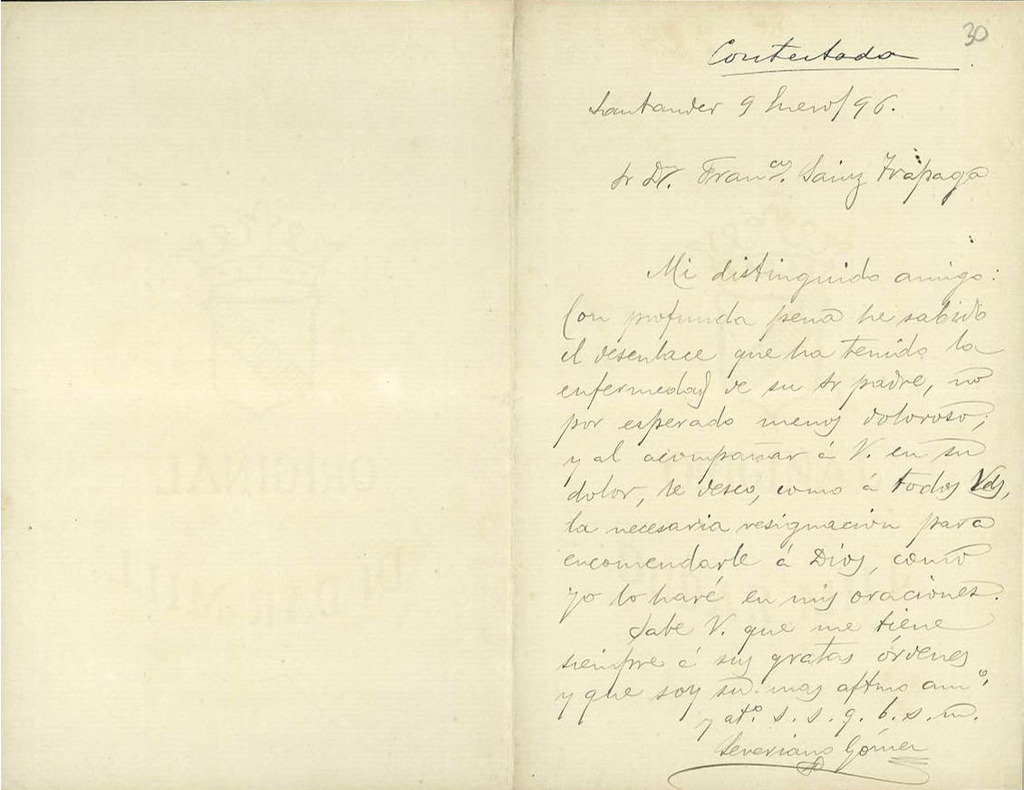 30
Contestada
Santander 9 Enero/96.
Sr Dn. Franco. Sainz Trápaga
Mi distinguido amigo:
Con profunda pena he sabido
el desenlace que ha tenido la
enfermedad de su Sr padre, no
por esperado menos doloroso;
y al acompañar á V. en su
dolor, le deseo, como á todos Vds,
la necesaria resignación para
encomendarle á Dios, como
yo lo haré en mis oraciones.
Sabe V. que me tiene
siempre á sus gratas órdenes
y que soy su mas aftmo amo.
y ato. s. s. q. b. s. m.
Severiano Gómez
ORIGINAL